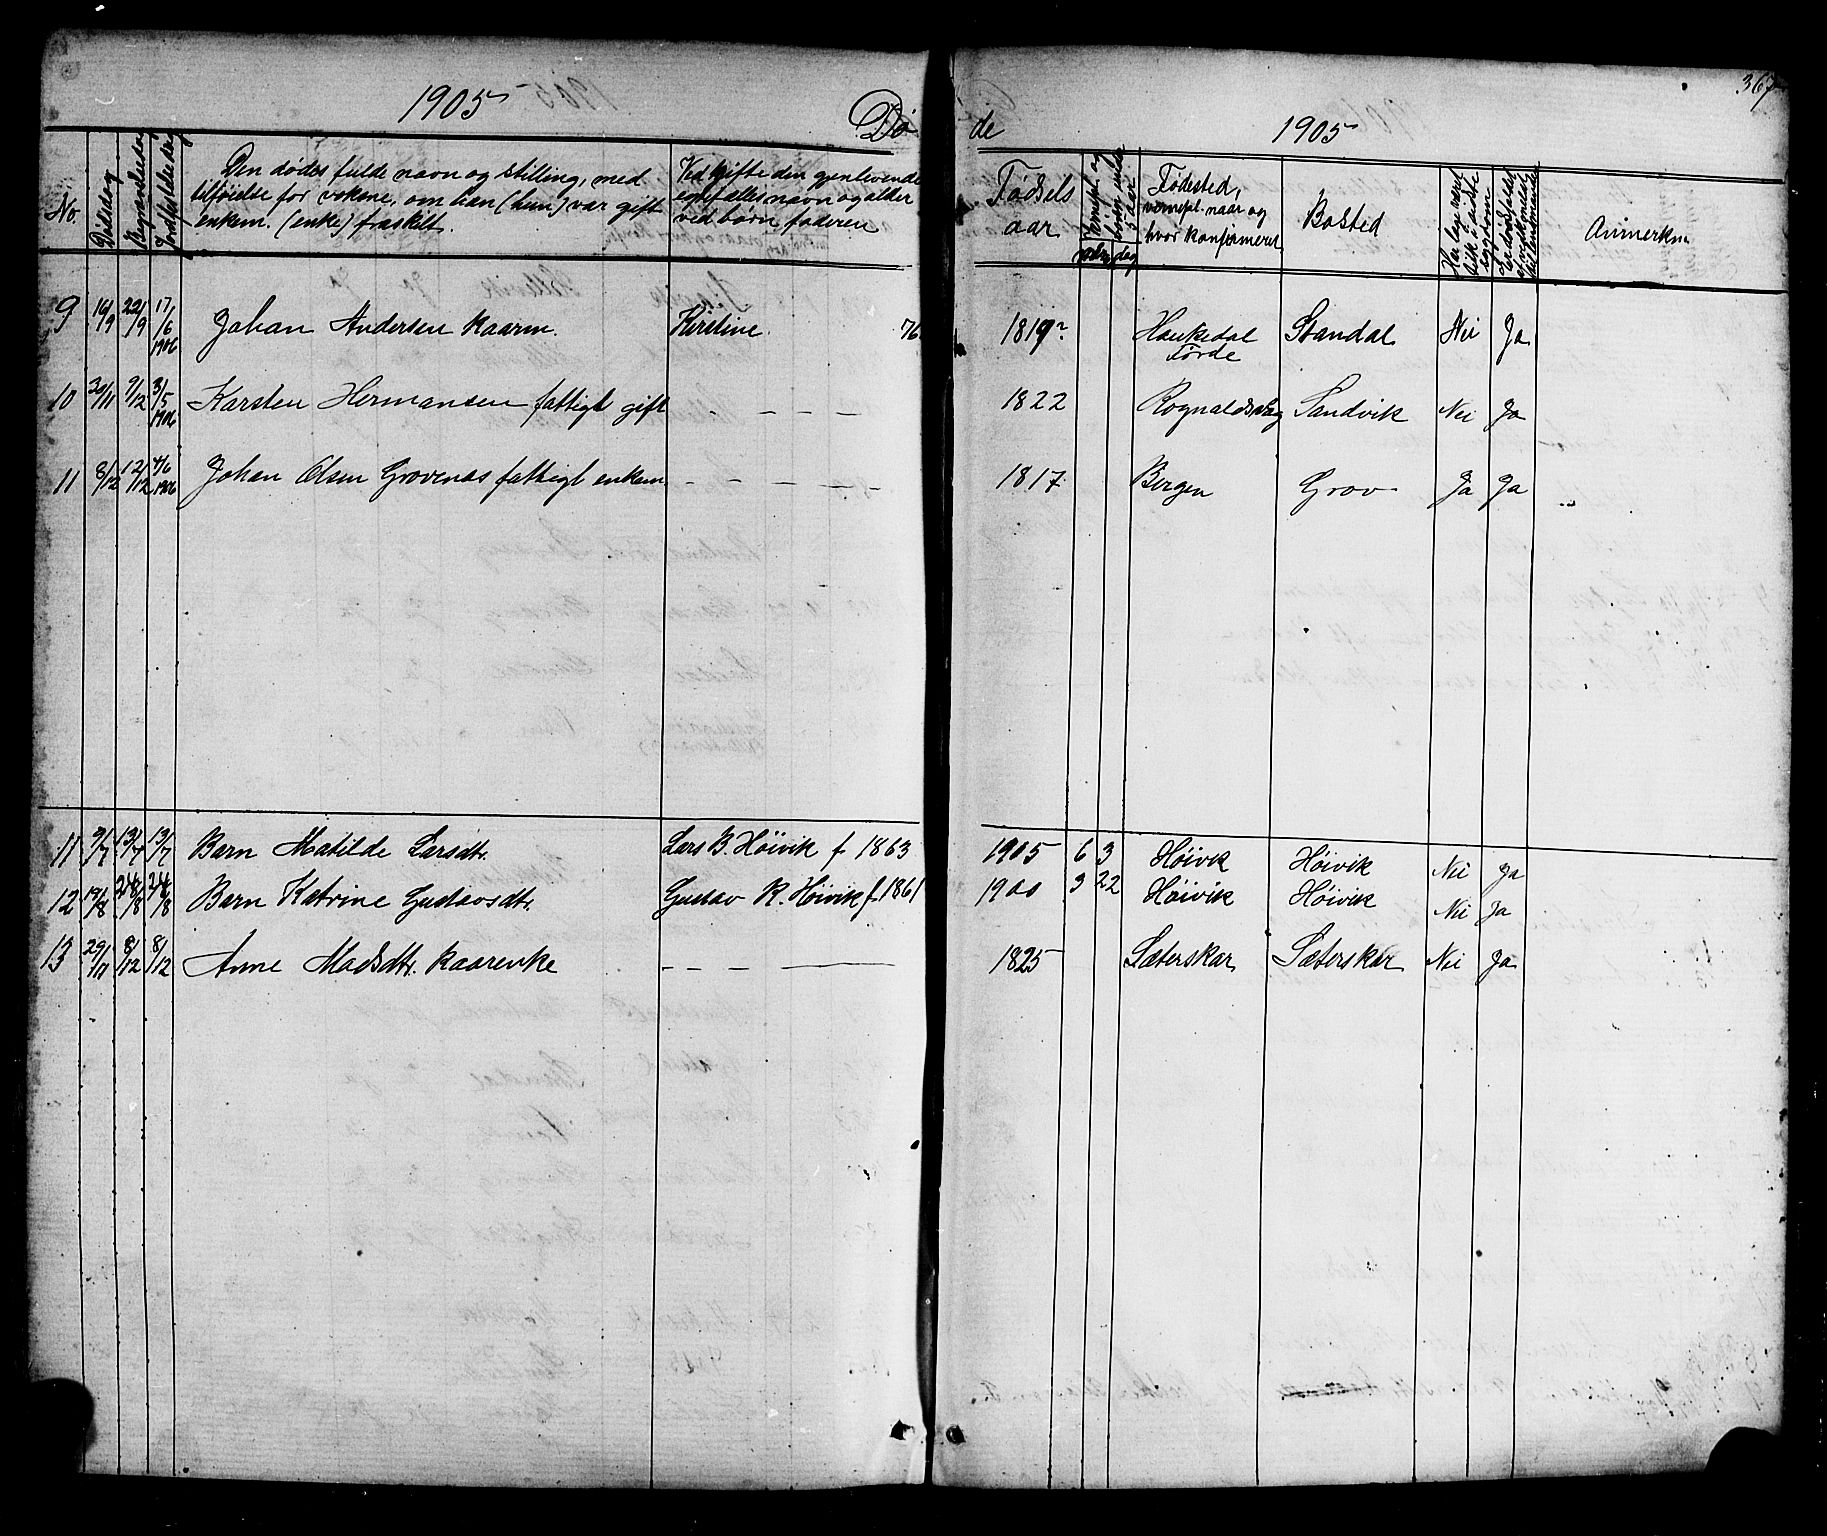 1905 Dø
de 1905 367
No. Dødsdag Begravelsesdag Jordfæstelsesdag
Den dødes fulde navn og stilling, med
tilføielse for voksne, om han (hun) var gift
enkem. (enke) fraskilt.
Ved gifte den gjenlevende
egtefælles navn og alder
ved børn faderen
Fødsels
aar
Fødested,
vernepl. naar og
hvor konfirmeret
Bosted
Anmerkn
9 22/9 17/6 1906 Johan Andersen kaarm. Kirstine 76 Haukedal Førde Standal Nei Ja
10 30/11 9/12 3/5 1906 Karsten Hermansen fattigl gift - - - - 1822 Rognaldsvåg Sandvik Nei Ja
11 8/12 12/12 4/6 1906 Johan Olsen Grovenes fattigl enkem - - - - - 1817 Bergen Grov Ja Ja
11 9/7 13/7 13/7 Barn Matilde Larsdtr. Lars B. Høivik f 1863 1905 6 3 Høivik Høivik Nei Ja
12 19/8 24/8 24/8 Barn Katrine Gustavsdtr. Gustav R. Høivik f. 1861 1900 3 22 Høivik Høivik Nei Ja
13 29/11 8/12 8/12 Anne Madsdtr. kaarenke - - - - 1825 Sæterskar Sæterskar Nei Ja